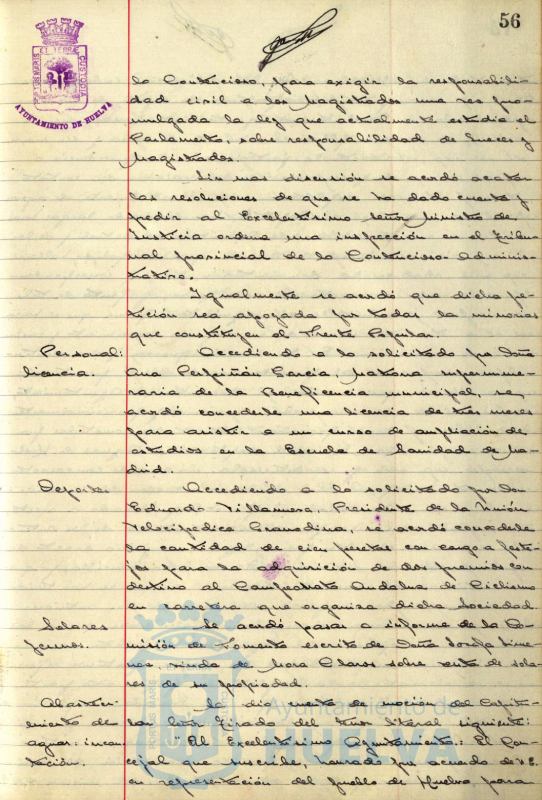 56
AYUNTAMIENTO DE HUELVA
lo Contencioso, para exigir la responsabili-
dad civil a los Magistrados una vez pro-
mulgada la ley que actualmente estudia el
Parlamento, sobre responsabilidad de Jueces y
Magistrados.
Sin mas discusión se acordó acatar
las resoluciones de que se ha dado cuenta y
pedir al Excelentísimo señor Ministro de
Justicia ordene una inspección en el Tribu-
nal provincial de lo Contencioso-Adminis-
trativo.
Igualmente se acordó que dicha pe-
tición sea apoyada por todas la minorias
que constituyen el Frente Popular.
Personal:
licencia.
Accediendo a lo solicitado por Doña
Ana Perpiñán Garcia, Matrona supernume-
raria de la Beneficencia municipal, se
acordó concederle una licencia de tres meses
para asistir a un curso de ampliación de
estudios en la Escuela de Sanidad de Ma-
drid.
Deportes
Accediendo a lo solicitado por Don
Eduardo Presidente de la Unión
Velocipedica Granadina, se acordó concederle
la cantidad de cien pesetas con cargo a feste-
jos para la adquisición de dos premios con
destino al Campeonato Andaluz de Ciclismo
en carretera que organiza dicha Sociedad.
Solares
yermos.
Se acordó pasar a informe de la Co-
misión de Fomento escrito de Doña Josefa Lime-
viuda de Mora Claros sobre venta de sola-
res de su propiedad.
Abasteci-
miento de
aguas: incau-
tación.
Se dio cuenta de moción del Capitu-
lar Señor Tirado del tenor literal siguiente:
"Al Excelentísimo Ayuntamiento: El Con-
cejal que suscribe, honrado por acuerdo de V.E.
en representación del pueblo de Huelva para
Ayuntamiento de
HUELVA